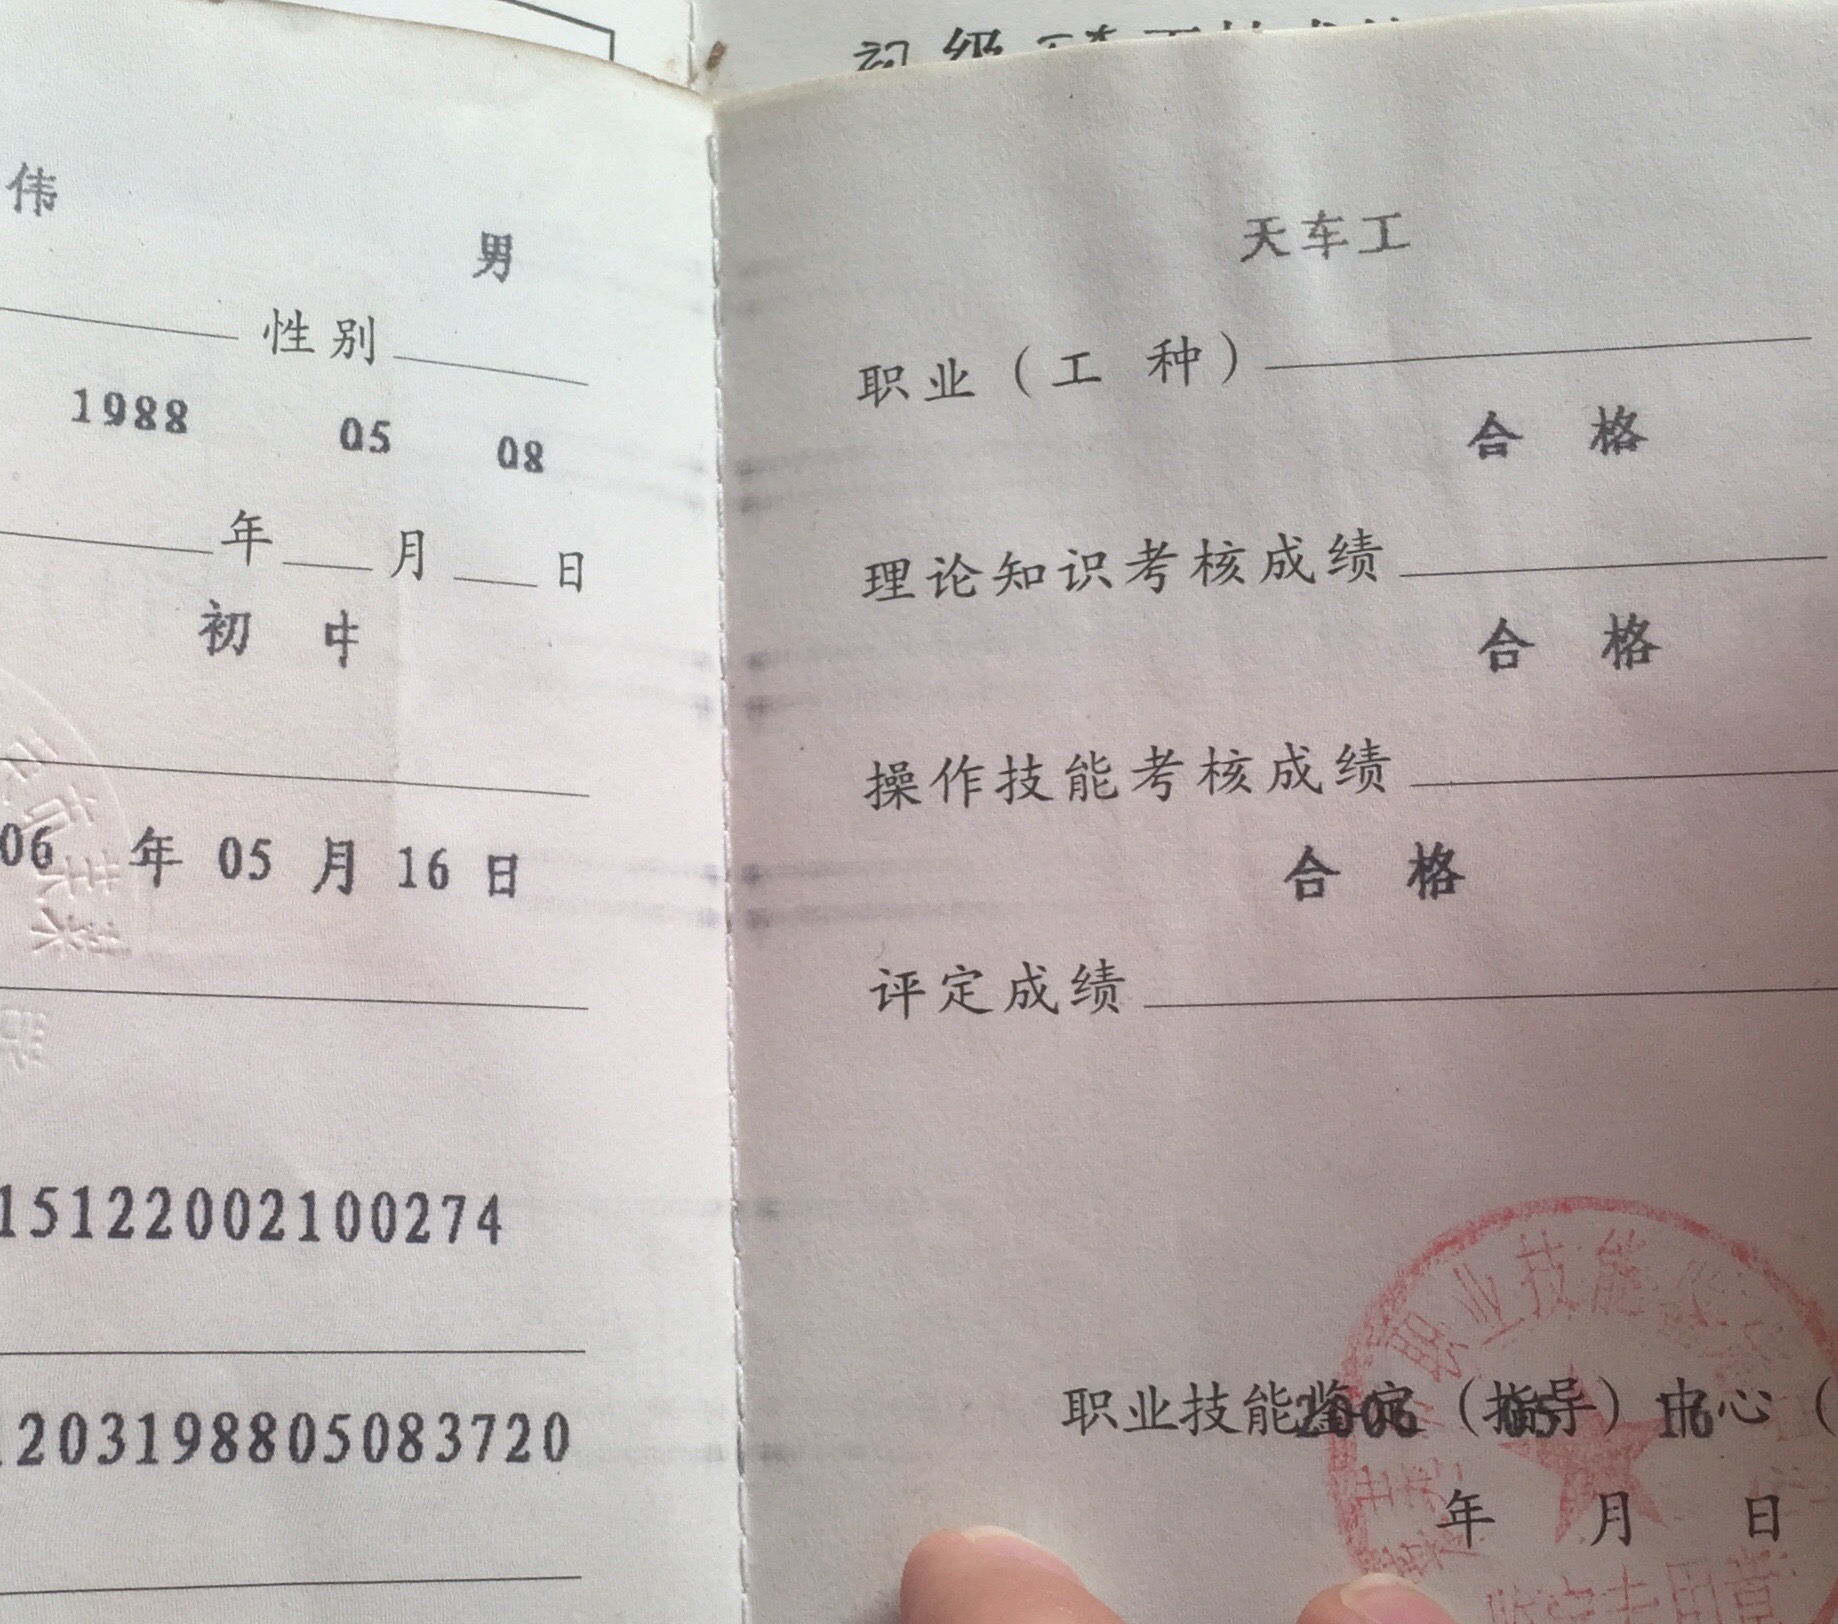 初级
伟
男
性别
1988 05 08
年 月 日
初 中
06 年 05 月 16 日
15122002100274
203198805083720
天车工
职业（工 种）
合 格
理论知识考核成绩
合 格
操作技能考核成绩
合 格
评定成绩
职业技能鉴定（指导）中心（
2006 05 16
年 月 日
职业技能鉴定
鉴定专用章